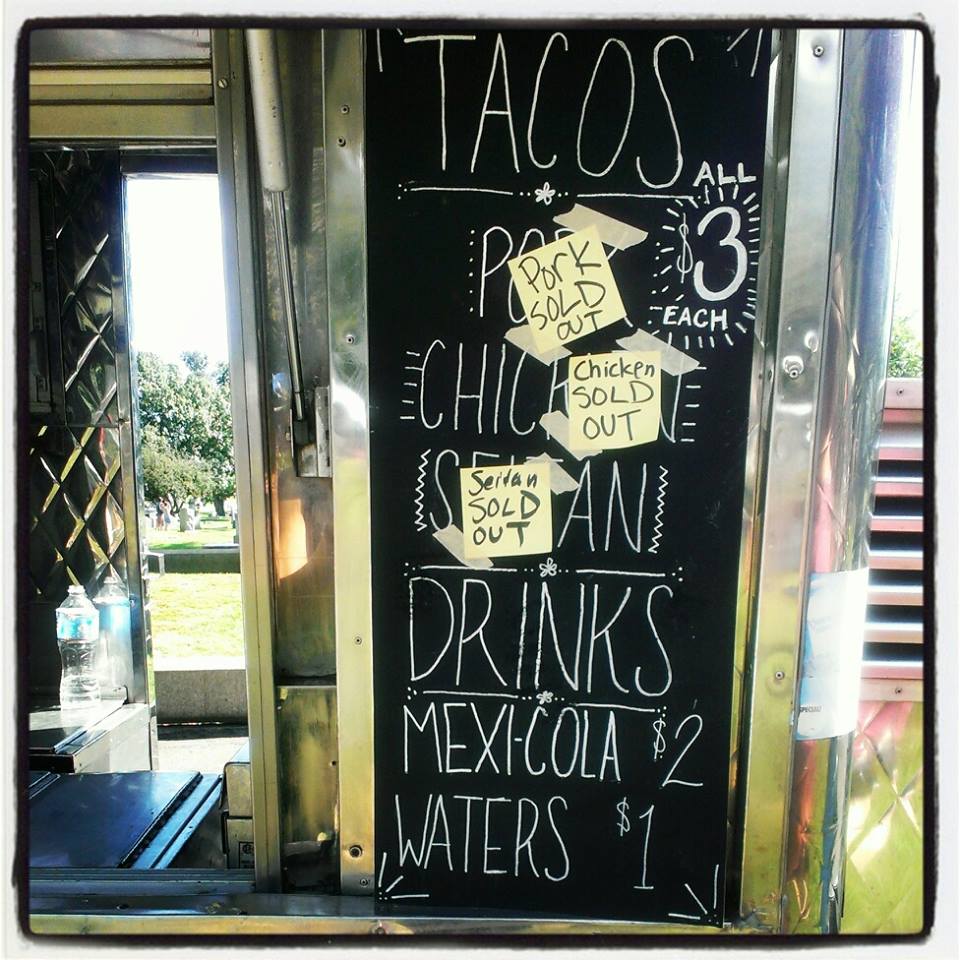 TACOS
ALL
$3
EACH
Pork
SOLD
OUT
CHIC N
Chicken
SOLD
OUT
Seitan
SOLD
OUT
DRINKS
MEXI-COLA $2
WATERS $1
SPECIAL!